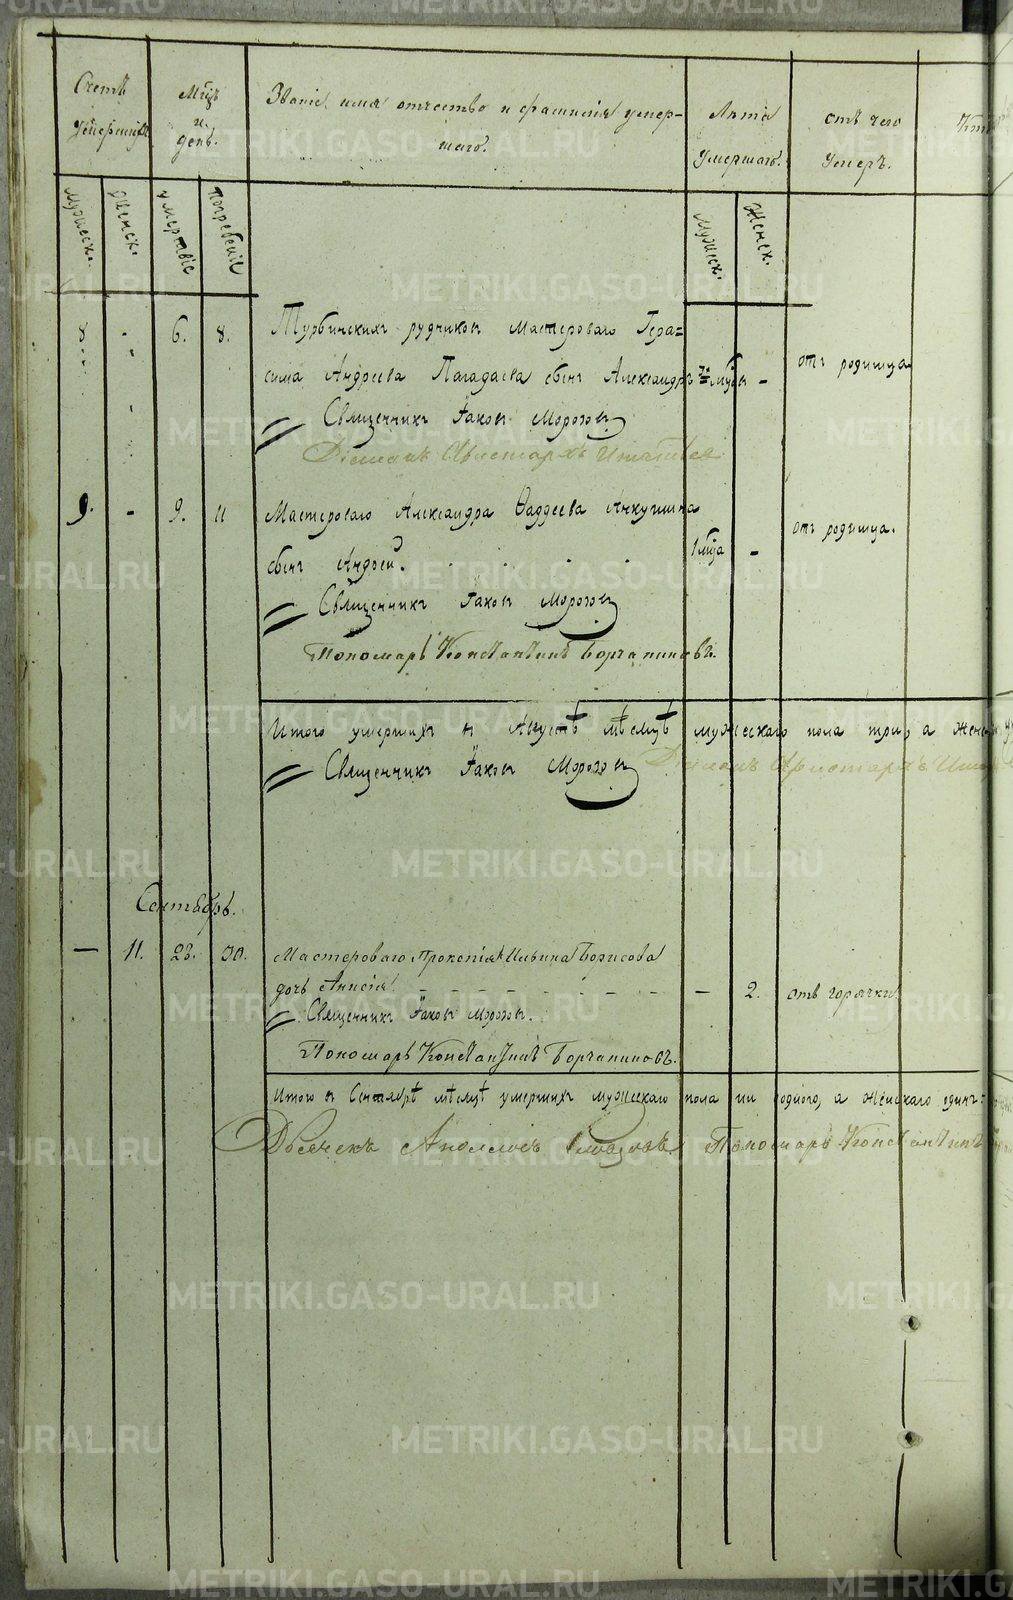 Счетъ умершихъ
Мцъ и день.
Званіе, имя отчество и фамилія умер-
шаго.
Лѣта умершаго.
отъ чего умеръ.
Мужеск.
Женск.
умертвіе
погребенія
Мужеск.
Женск.
8 - 6. 8. Турьинскихъ рудниковъ мастероваго Гера=
сима Андреева сынъ Александръ - отъ родимца
Священникъ Іаковъ Морозовъ
Діаконъ Аристархъ
9. - 9. 11 Мастероваго Александра Фаддеева
сынъ Андрей. 1 мца - отъ родимца.
Священникъ Іаковъ Морозовъ
Пономарь Константинъ Борчаниновъ.
Итого умершихъ въ Августѣ мѣсяцѣ мужескаго пола три, а
Священникъ Іаковъ Морозовъ Діаконъ Аристархъ
Сентябрь.
— 11. 23. 30. Мастероваго Прокопія Ильина Борисова
дочь Анисія — 2. отъ горячки
Священникъ Іаковъ Морозовъ.
Пономарь Константинъ Борчаниновъ.
Итого въ Сентябрѣ мѣсяцѣ умершихъ мужескаго пола ни одного, а женскаго одинъ:
Дьячекъ Аполлосъ Пономарь Константинъ
METRIKI.GASO-URAL.RU